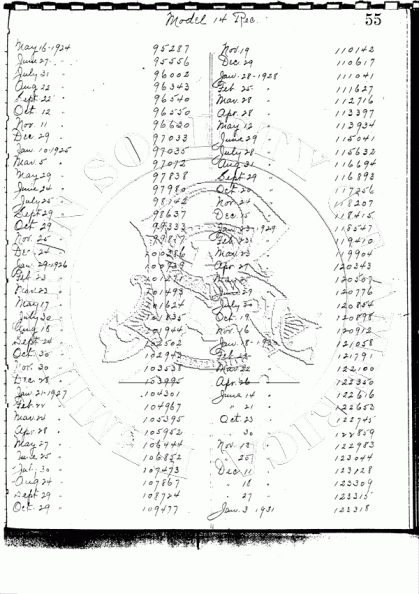 Model 14 Rec.
55
May 16-1924 95287
June 27 " 95556
July 31 " 96002
Aug 22 " 96343
Sept 22 " 96540
Oct 12 " 96550
Nov 11 " 96620
Dec 29 " 97033
Jan. 10 1925 97035
Mar. 5 " 97072
May 29 " 97838
June 24 " 97980
July 25 " 98142
Sept 29 " 98637
Oct 29 " 99333
Nov. 25 "
Dec 24 "
Jan 29-1926
Feb 23 "
Mar 23 "
May 17 101624
July 30 "
Aug 18 101944
Sept 24 102502
Oct 30 " 102943
Nov. 30 103538
Dec 28 " 103995
Jan 21-1927 104301
Feb 104967
Mar 24 " 105395
Apr 28 " 105952
May 27 " 106444
June 25 " 106852
July 30 " 107473
Aug 24 107867
Sept 29 " 108724
Oct 29 " 109477
Nov 19 110142
Dec 29 110617
Jan. 28-1928 111041
Feb 25 " 111627
Mar 28 " 112716
Apr. 28 " 113397
May 12 " 113934
June 29 " 115041
July 28 " 115632
Aug 31 " 116694
Sept 29 " 116893
Oct 20 " 117256
Nov 24 " 118207
Dec 15 " 118415
Jan 1929 118547
Feb 119410
Mar 23 " 119904
Apr 27 120243
May 120507
June 29 120776
July 20 120854
Oct. 19 120898
Nov 16 120912
Jan 18 121058
Feb 121791
Mar 22 122100
Apr 26 122350
June 14 122616
" 21 122653
Oct 23 122745
" 30 122859
Nov 18 122983
" 20 123044
Dec 11 123128
" 18 " 123309
" 27 123315
Jan. 3 1931 123318